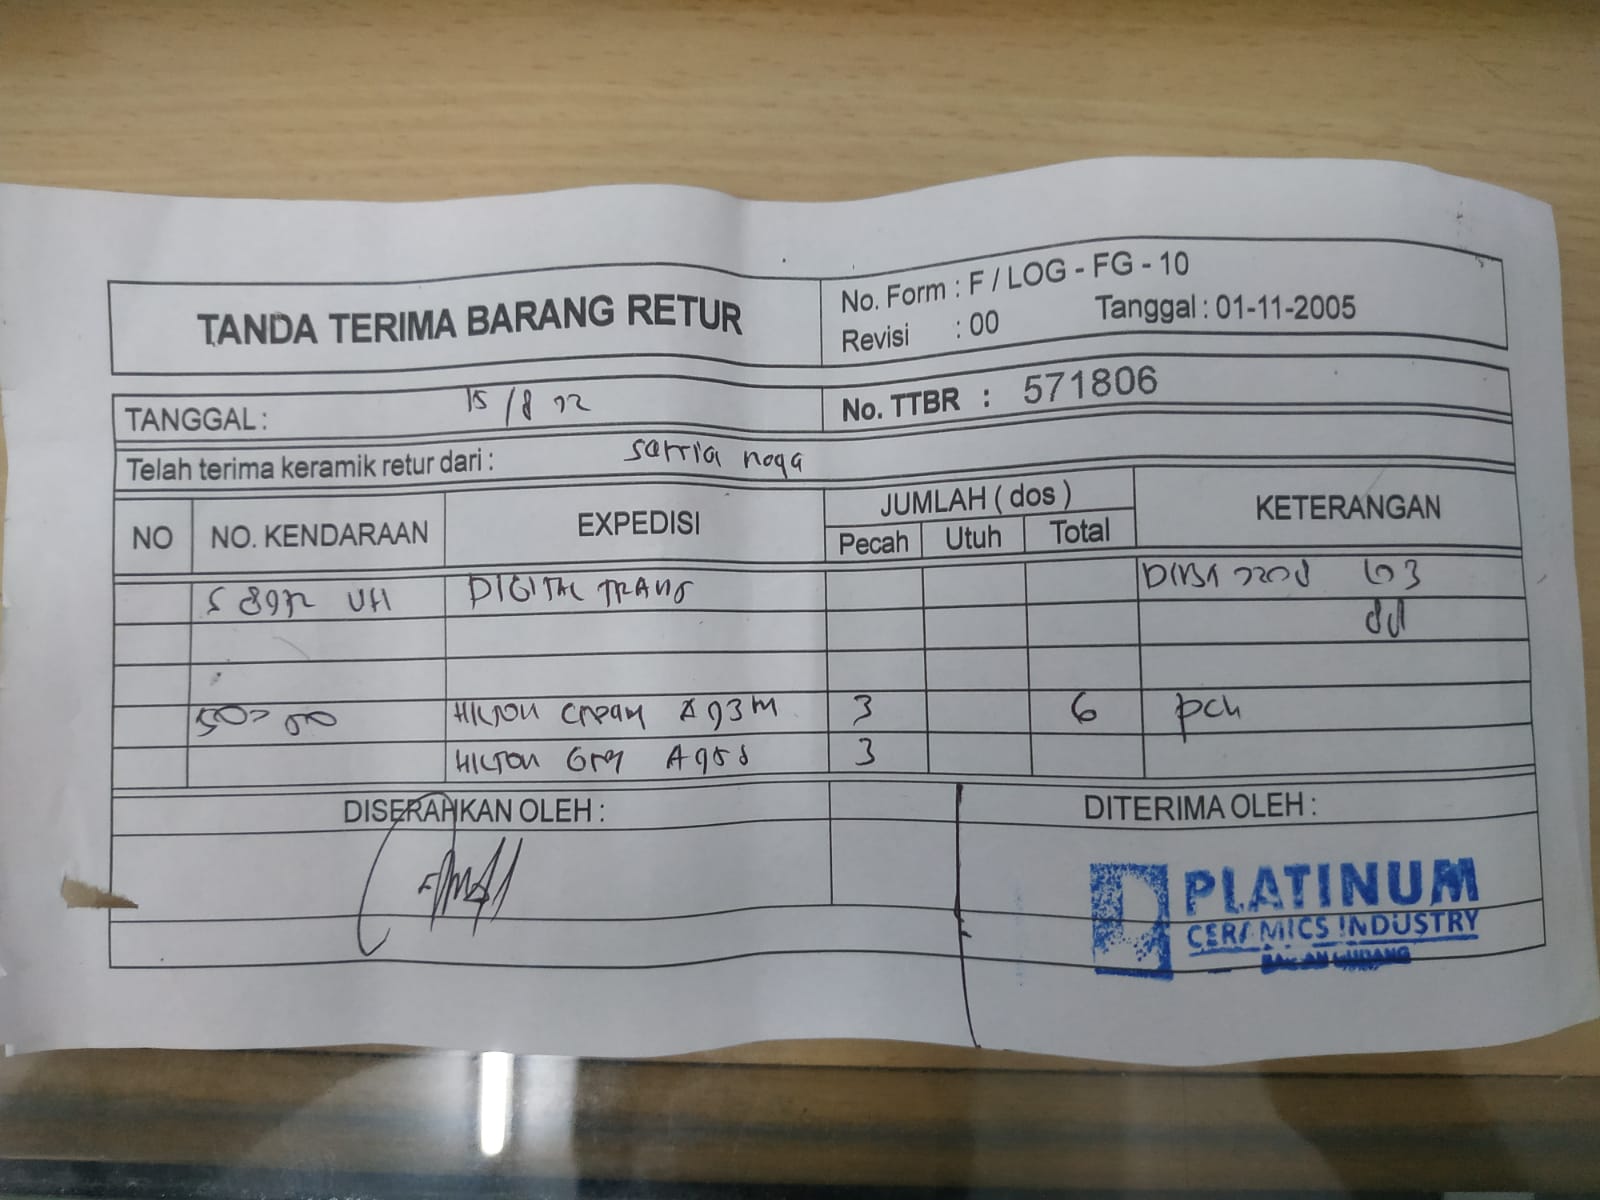 TANDA TERIMA BARANG RETUR
No. Form : F / LOG - FG - 10
Revisi : 00 Tanggal : 01-11-2005
TANGGAL : 15/8 22
No. TTBR : 571806
Telah terima keramik retur dari : Satria noga
NO NO. KENDARAAN EXPEDISI JUMLAH ( dos ) KETERANGAN
Pecah Utuh Total
S 8972 UH DIGITAL TRANS
HILTON Cream A 93M 3 6 pch
HILTON Grey 3
DISERAHKAN OLEH : DITERIMA OLEH :
PLATINUM
CERAMICS INDUSTRY
BAGIAN GUDANG